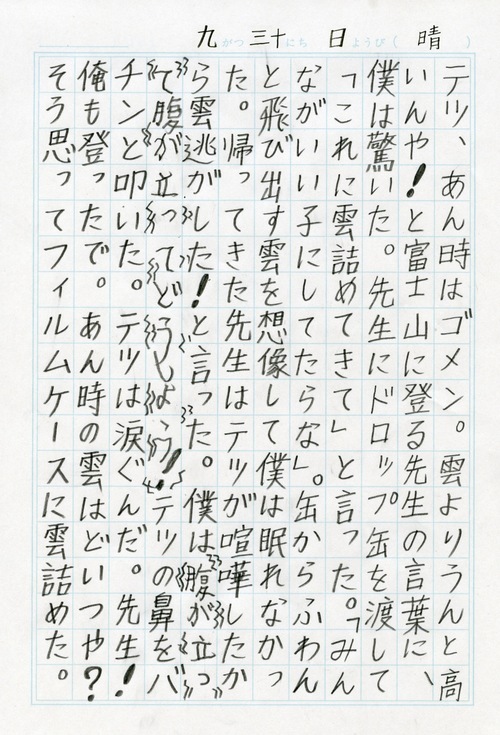 九がつ三十にち 日ようび（晴）
テツ、あん時はゴメン。雲よりうんと高
いんや！と富士山に登る先生の言葉に、
僕は驚いた。先生にドロップ缶を渡して
「これに雲詰めてきて」と言った。「みん
ながいい子にしてたらな」。缶からふわん
と飛び出す雲を想像して僕は眠れなかっ
た。帰ってきた先生はテツが喧嘩したか
ら雲逃がした！と言った。僕は腹が立っ
て腹が立ってどうしよう！テツの鼻をバ
チンと叩いた。テツは涙ぐんだ。先生！
俺も登ったで。あん時の雲はどいつや？
そう思ってフィルムケースに雲詰めた。